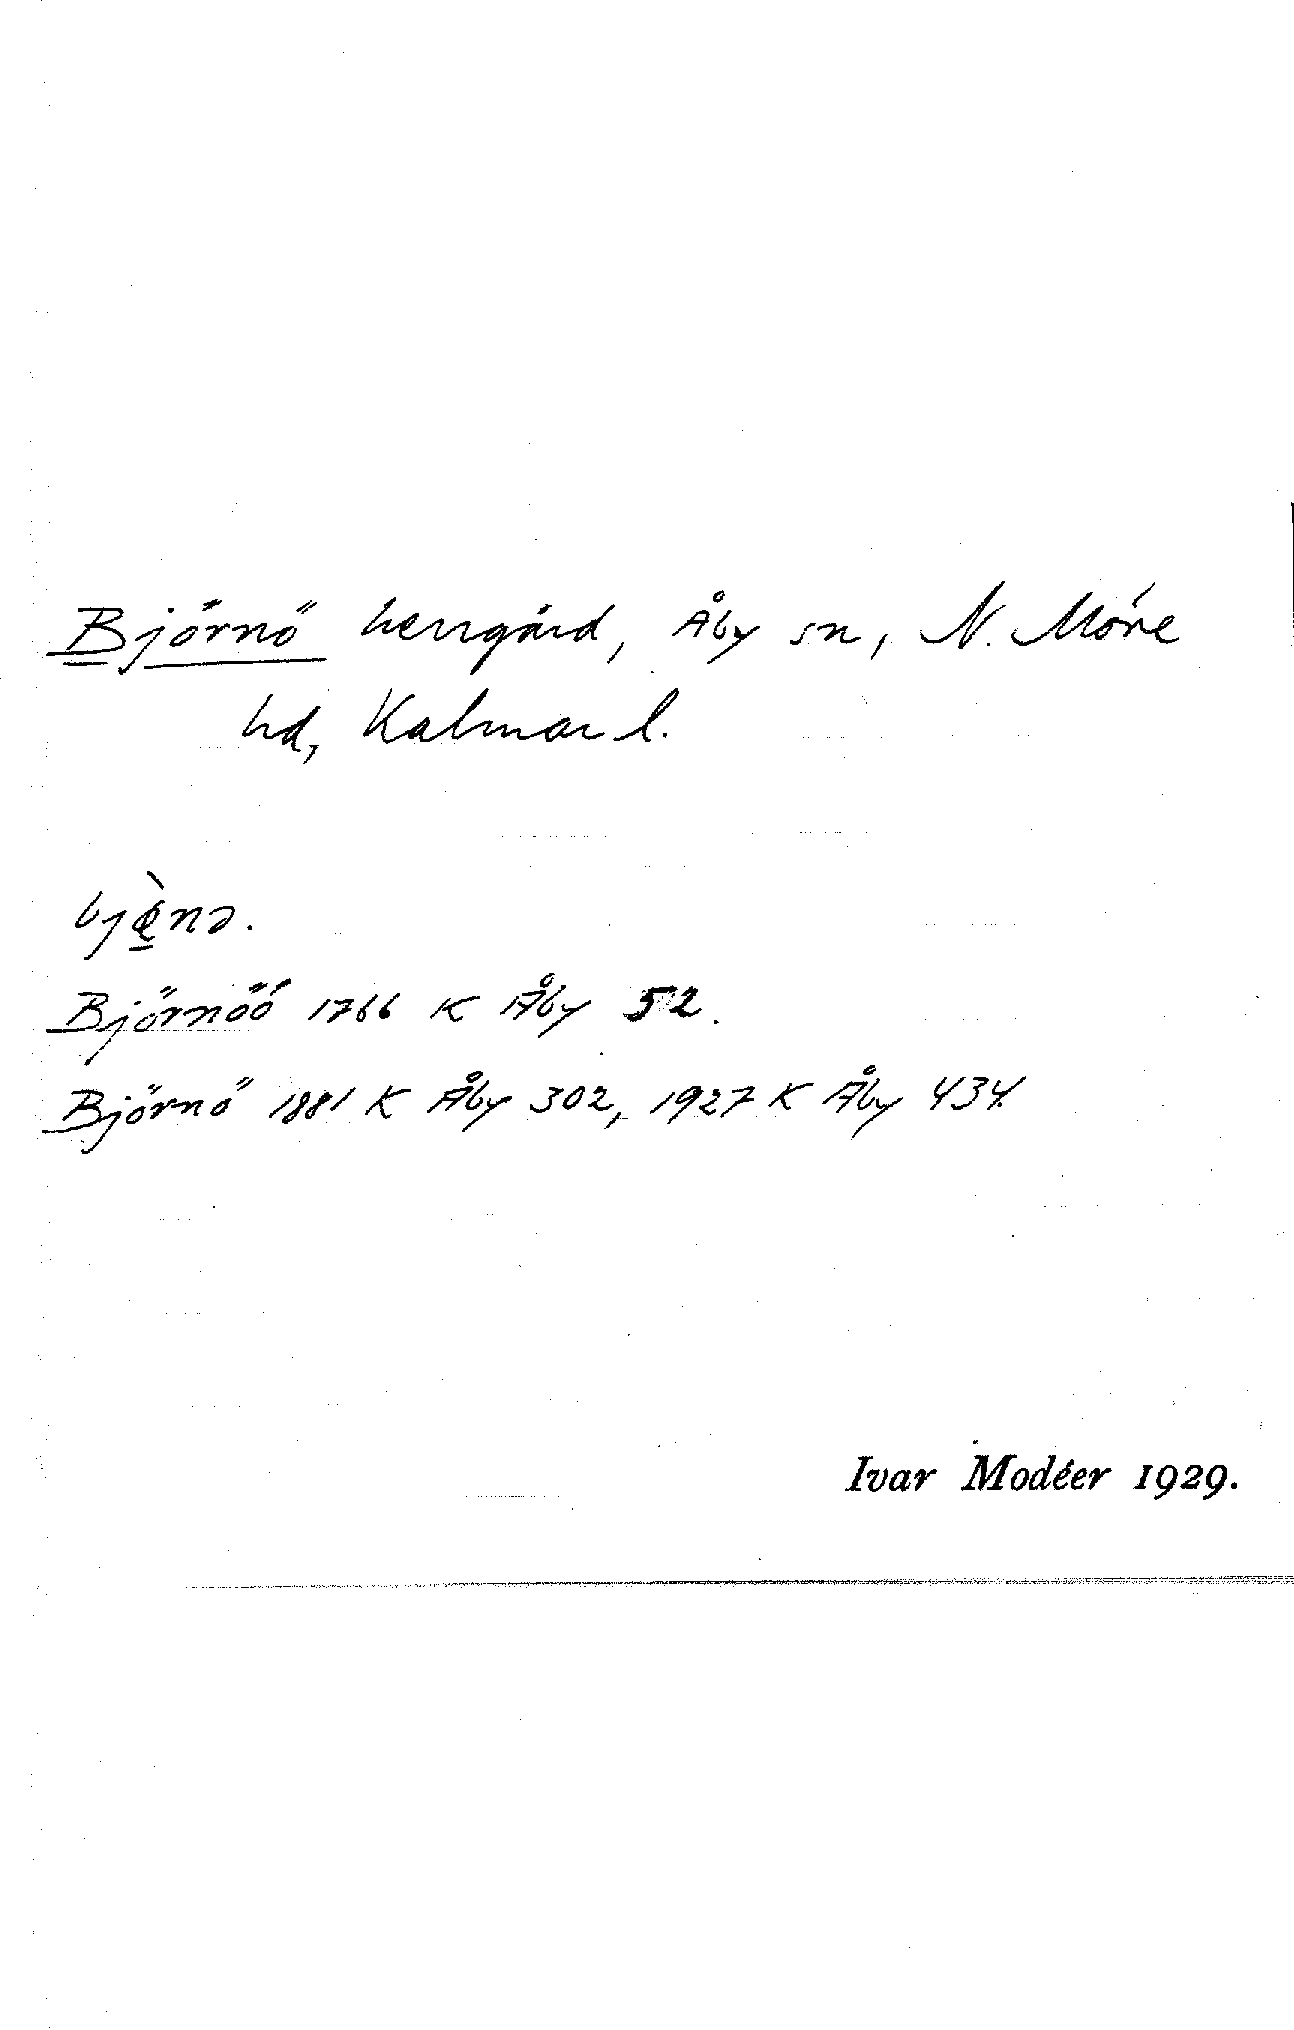 Björnö herrgård, Åby sn, N. Möre
hd, Kalmar l.
Björnöö 1766 K Åby 52.
Björnö 1881 K Åby 302, 1927 K Åby 434.
Ivar Modéer 1929.